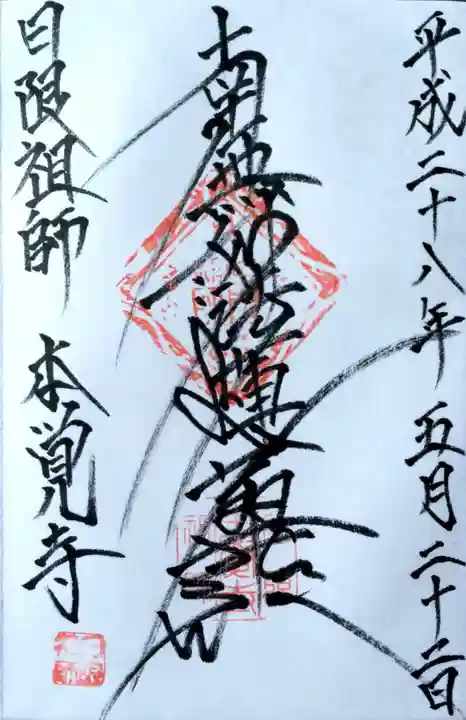 平成二十八年 五月二十二日
南無妙法蓮華経
日限祖師 本覚寺